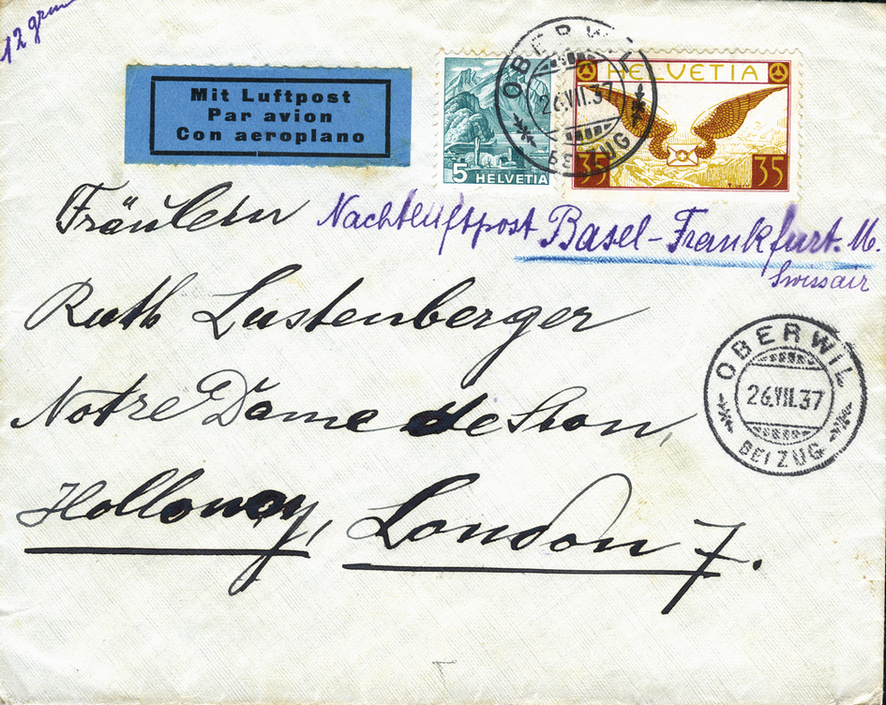 12 gram
Mit Luftpost
Par avion
Con aeroplano
5 HELVETIA
HELVETIA
35 35
OBERWIL
26.VII.37
BEI ZUG
Fräulein
Nachtluftpost Basel-Frankfurt. M.
Swissair
Ruth Lustenberger
Notre Dame de Sion,
Holloway, London 7.
OBERWIL
26.VII.37
BEI ZUG